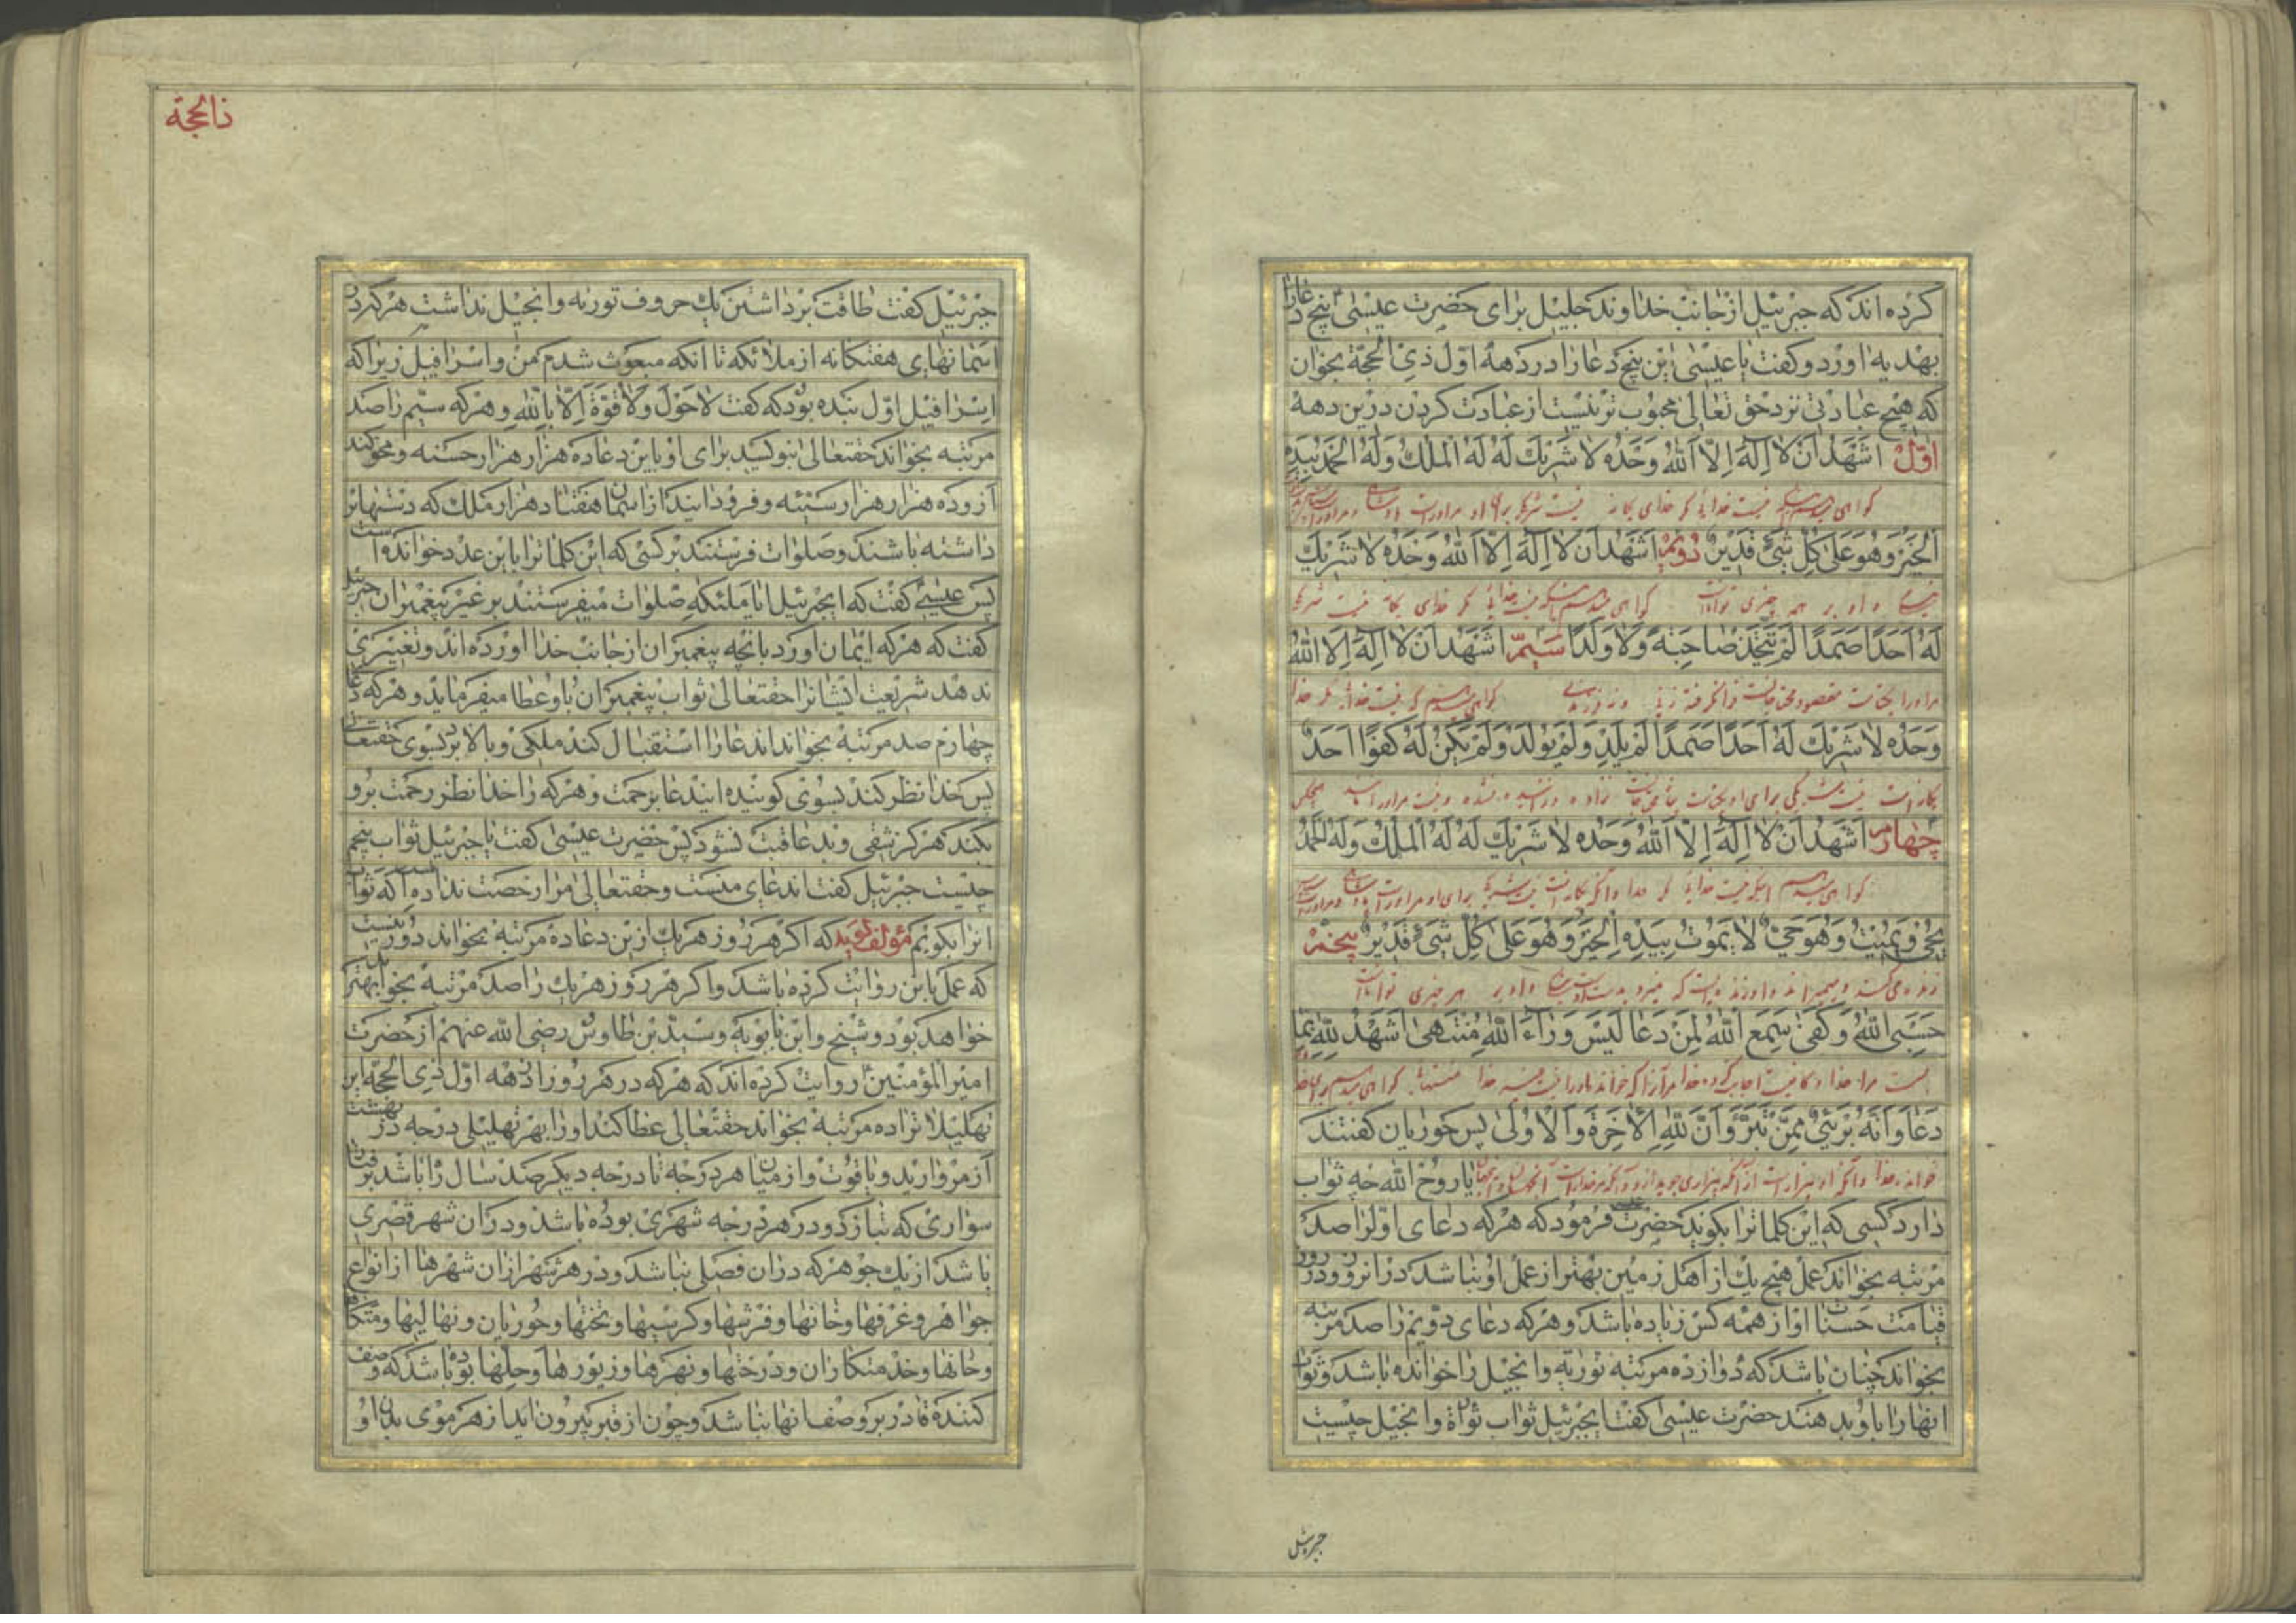 کرده اند که جبرئیل از جانب خداوند جلیل برای حضرت عیسی پنج دعا را
بهدیه اورد و کفت یا عیسی این پنج دعا را در دههٔ اوّل ذی الحجّة بخوان
که هیچ عبادتی نزد حق تعالی محبوب تر نیست از عبادت کردن درین دهه
اوّل اشهد ان لا اله الا الله وحده لا شریك له له الملك وله الحمد بیده
کواهی میدهم اینکه نیست خدایی مکر خدای یکانه نیست شریکی برای او مراوراست پادشاهی و مراوراست
الخیر وهو علی کل شیء قدیر دویّم اشهد ان لا اله الا الله وحده لا شریك
نیکی و او بر همه چیزی تواناست کواهی میدهم اینکه نیست خدایی مکر خدای یکانه نیست شریکی
له احدا صمدا لم یتخذ صاحبة ولا ولدا سیّم اشهد ان لا اله الا الله
مراورا یکتاست مقصود محتاجانست فرا نکرفته زنی و نه فرزندی کواهی میدهم که نیست خدایی مکر خدا
وحده لا شریك له احدا صمدا لم یلد ولم یولد ولم یکن له کفوا احد
یکانه است نیست شریکی برای او یکتاست نزاده و زائیده نشده و نیست مراورا هیچکس
چهارم اشهد ان لا اله الا الله وحده لا شریك له له الملك وله الحمد
کواهی میدهم اینکه نیست خدایی مکر خدا یکانه است نیست شریکی برای او مراوراست پادشاهی و مراوراست
یحیی ویمیت وهو حی لا یموت بیده الخیر وهو علی کل شیء قدیر پنجم
زنده می کند و میمیراند و او زنده ایست که نمیرد بدست اوست نیکی و او بر هر چیزی تواناست
حسبی الله وکفی سمع الله لمن دعا لیس وراء الله منتهی اشهد لله بما
بست مرا خدا و کافیست اجابت کرده خدا مر آنرا که خواند او را نیست خدا کواهی میدهم
دعا وانه بریء ممن تبرء وان لله الاخرة والاولی پس حوریان کفتند
یا روح الله چه ثواب
دارد کسی که این کلماترا بکوید حضرت فرمود که هرکه دعای اوّلرا صد
مرتبه بخواند عمل هیچ یك از اهل زمین بهتر از عمل او نباشد در انروز و در روز
قیامت حسنات او از همه کس زیاده باشد و هرکه دعای دویّم را صد مرتبه
بخواند چنان باشد که دوازده مرتبه توریة وانجیل را خوانده باشد و ثواب
انها را باو بدهند حضرت عیسی کفت ایجبرئیل ثواب توراة وانجیل چیست
جبرئیل
ذالحجة
جبرئیل کفت طاقت برداشتن یك حروف توریه وانجیل نداشت هرکه در
اسمانهای هفتکانه از ملائکه تا انکه مبعوث شدم من واسرافیل زیرا که
اسرافیل اوّل بنده بود که کفت لا حول ولا قوة الا بالله وهرکه سیّم را صد
مرتبه بخواند حقتعالی بنویسد برای او باین دعا ده هزار هزار حسنه و محو کند
از و ده هزار هزار سیّئه و فرود ایند از اسمان هفتاد هزار ملك که دستها بر
داشته باشند و صلوات فرستند بر کسی که این کلماترا باین عدد خوانده است
پس عیسی کفت که ایجبرئیل ایا ملئکه صلوات میفرستند بر غیر پیغمبران جبرئیل
کفت که هرکه ایمان اورد بانچه پیغمبران از جانب خدا اورده اند و تغییری
ندهد شریعت ایشانرا حقتعالی ثواب پیغمبران باو عطا میفرماید و هرکه دعا
چهارم صد مرتبه بخواند اندعا را استقبال کند ملکی و بالا برد بسوی حقتعالی
پس خدا نظر کند بسوی کوینده ایندعا برحمت و هرکه را خدا نظر رحمت برو
بکند هرکز شقی و بد عاقبت نشود پس حضرت عیسی کفت یا جبرئیل ثواب پنجم
چیست جبرئیل کفت اندعای منست وحقتعالی مرا رخصت نداده است که ثواب
انرا بکویم مؤلف کوید که اکر هر روز هریك ازین دعا ده مرتبه بخواند دور نیست
که عمل باین روایت کرده باشد واکر هر روز هریك را صد مرتبه بخواند بهتر
خواهد بود و شیخ وابن بابویه وسید بن طاوس رضی الله عنهم از حضرت
امیر المؤمنین روایت کرده اند که هرکه در هر روز از دهه اوّل ذی الحجّه این
تهلیلاترا ده مرتبه بخواند حقتعالی عطا کند اورا بهر تهلیلی درجه در بهشت
از مروارید و یاقوت و از میان هر درجه تا درجه دیکر صد سال راه باشد برفتار
سواری که بتازد و در هر درجه شهری بوده باشد و در ان شهر قصری
باشد از یك جوهر که در ان فصلی نباشد و در هر شهر از ان شهرها از انواع
جواهر و غرفها و خانها و فرشها و کرسیها و تختها و حوریان و نهالیها و متکاها
و خانها و خدمتکاران و درختها و نهرها و زیورها و حلّها بوده باشد که وصف
کننده قادر بر وصف انها نباشد و چون از قبر بیرون اید از هر موی بدن او